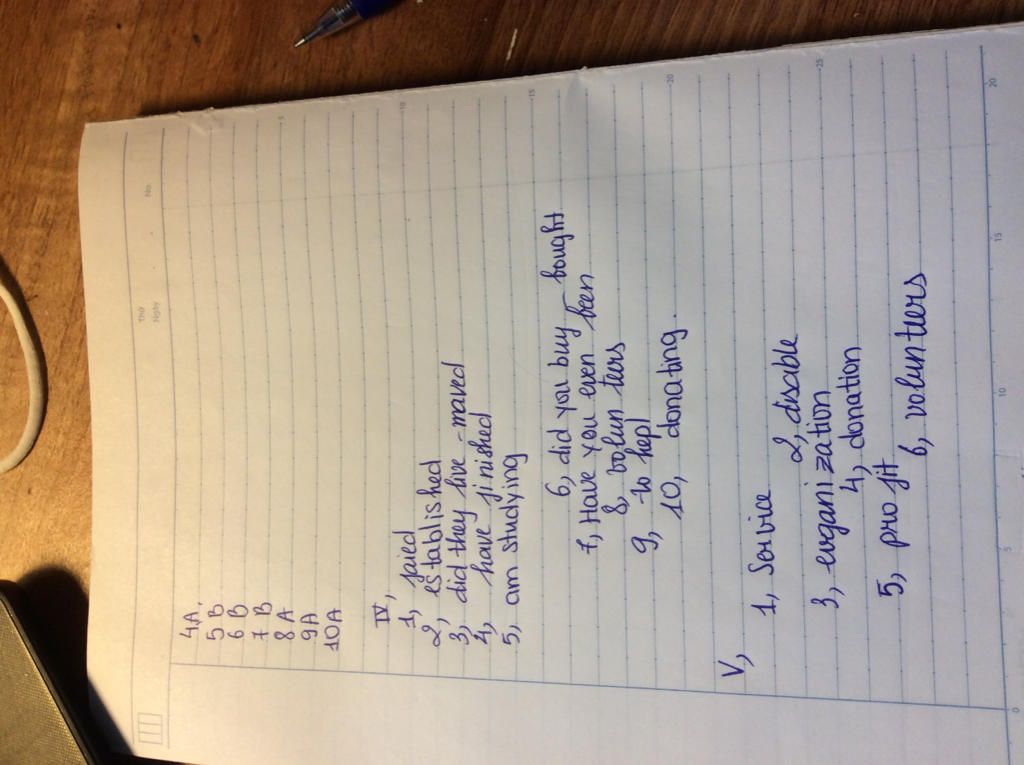 Thứ
Ngày
No.
4A.
5 B
6 B
7 B
8 A
9A
10A
IV,
1, jaied
2, established
3, did they live - moved
4, have finished
5, am studying
6, did you buy - bought
7, Have you even been
8, volun teers
9, to hepl
10, donating.
V,
1, Service
2, disable
3, evrganization
4, donation
5, pro fit
6, volunteers
5
10
15
20
25
0
5
10
15
20